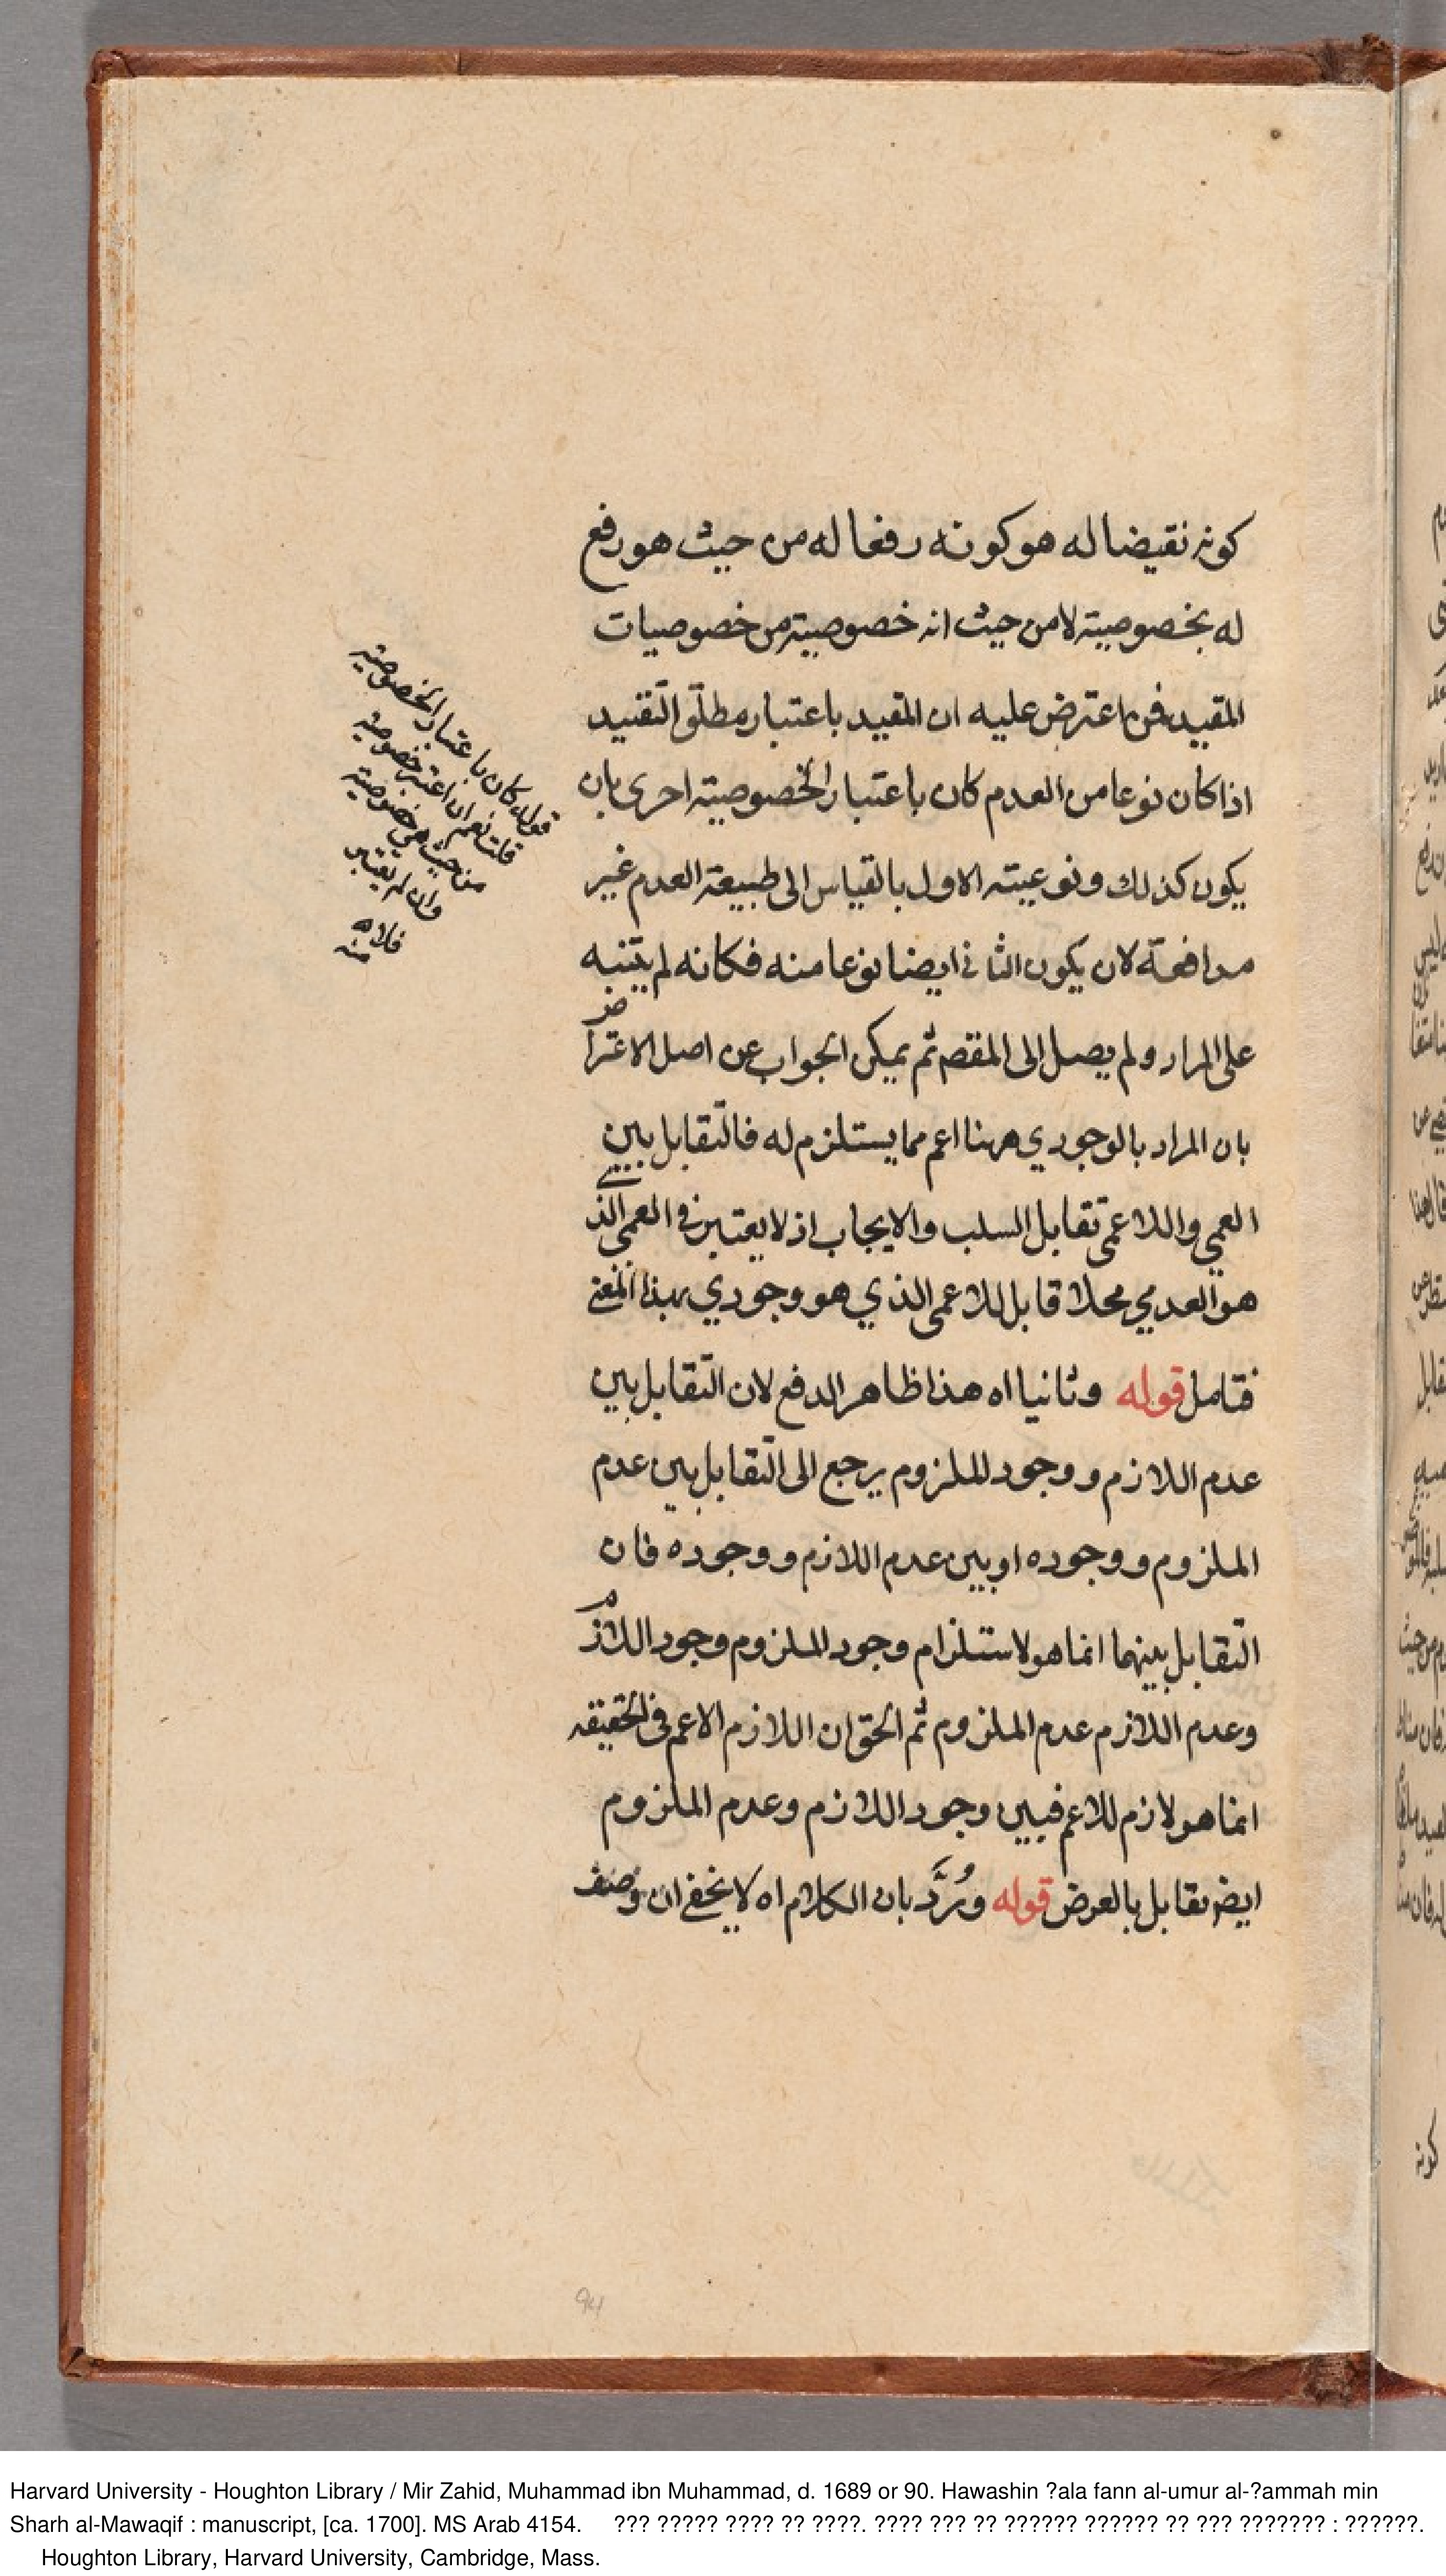 كونه نقيضا له هو كونه رفعا له من حيث هو رفع
له بخصوصيته لا من حيث انه خصوصية من خصوصيات
المقيد فمن اعترض عليه ان المقيد باعتبار مطلق التقييد
اذا كان نوعا من العدم كان باعتبار الخصوصية احرى بان
يكون كذلك ونوعيته الاول بالقياس الى طبيعة العدم غير
مدافعة لان يكون الثاني ايضا نوعا منه فكانه لم يتنبه
على المراد ولم يصل الى المقصم ثم يمكن الجواب عن اصل الاعتراض
بان المراد بالوجودي ههنا اعم مما يستلزم له فالتقابل بين
العمى واللاعمى تقابل السلب والايجاب اذ لا يعتبر في العمى الذي
هو العدمي محلا قابلا للاعمى الذي هو وجودي بهذا المعنى
فتامل قوله وثانيا اه هذا ظاهر الدفع لان التقابل بين
عدم اللازم ووجود الملزوم يرجع الى التقابل بين عدم
الملزوم ووجوده او بين عدم اللازم ووجوده فان
التقابل بينهما انما هو لاستلزام وجود الملزوم وجود اللازم
وعدم اللازم عدم الملزوم ثم الحق ان اللازم الاعم في الحقيقه
انما هو لازم للاعم فبين وجود اللازم وعدم الملزوم
ايض تقابل بالعرض قوله ورُدَّ بان الكلام اه لا يخفى ان وصف
قوله كان باعتبار الخصوصية
قلت نعم ان اعتبر خصوصيته
من حيث هي خصوصية
وان لم يعتبر
فلا اه
منه
94
كونه
Harvard University - Houghton Library / Mir Zahid, Muhammad ibn Muhammad, d. 1689 or 90. Hawashin ?ala fann al-umur al-?ammah min
Sharh al-Mawaqif : manuscript, [ca. 1700]. MS Arab 4154. ??? ????? ???? ?? ????. ???? ??? ?? ?????? ?????? ?? ??? ??????? : ??????.
Houghton Library, Harvard University, Cambridge, Mass.